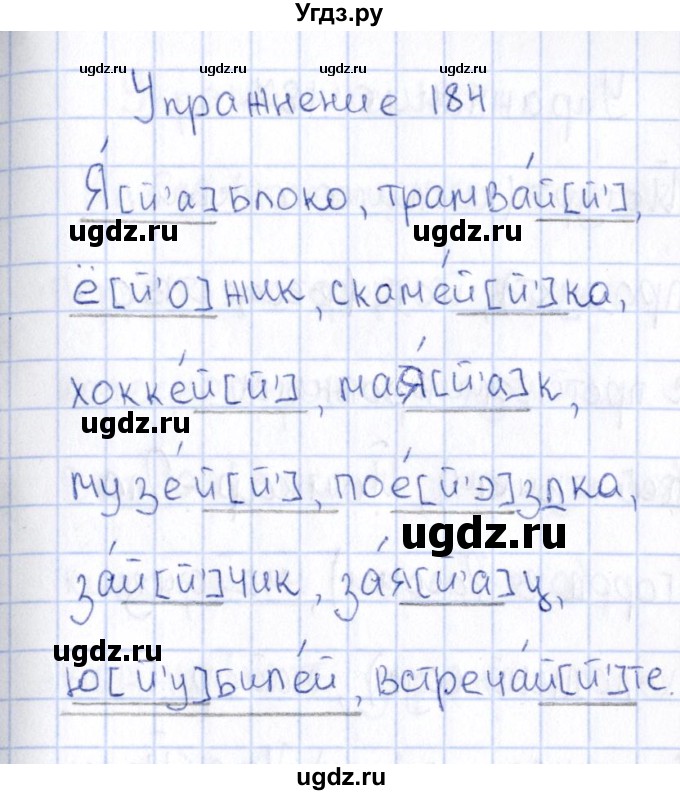 Угдз.ру
ugdz.ru ugdz.ru ugdz.ru ugdz.ru
Упражнение 184
Я́[й'а]блоко, трамва́й[й'],
ugdz.ru ugdz.ru
ё[й'о]жик, скаме́й[й']ка,
хокке́й[й'], мая́[й'а]к,
ugdz.ru
музе́й[й'], пое́[й'э]здка,
ugdz.ru
за́й[й']чик, за́я[й'а]ц,
ugdz.ru
ю[й'у]биле́й, встреча́й[й']те.
ugdz.ru